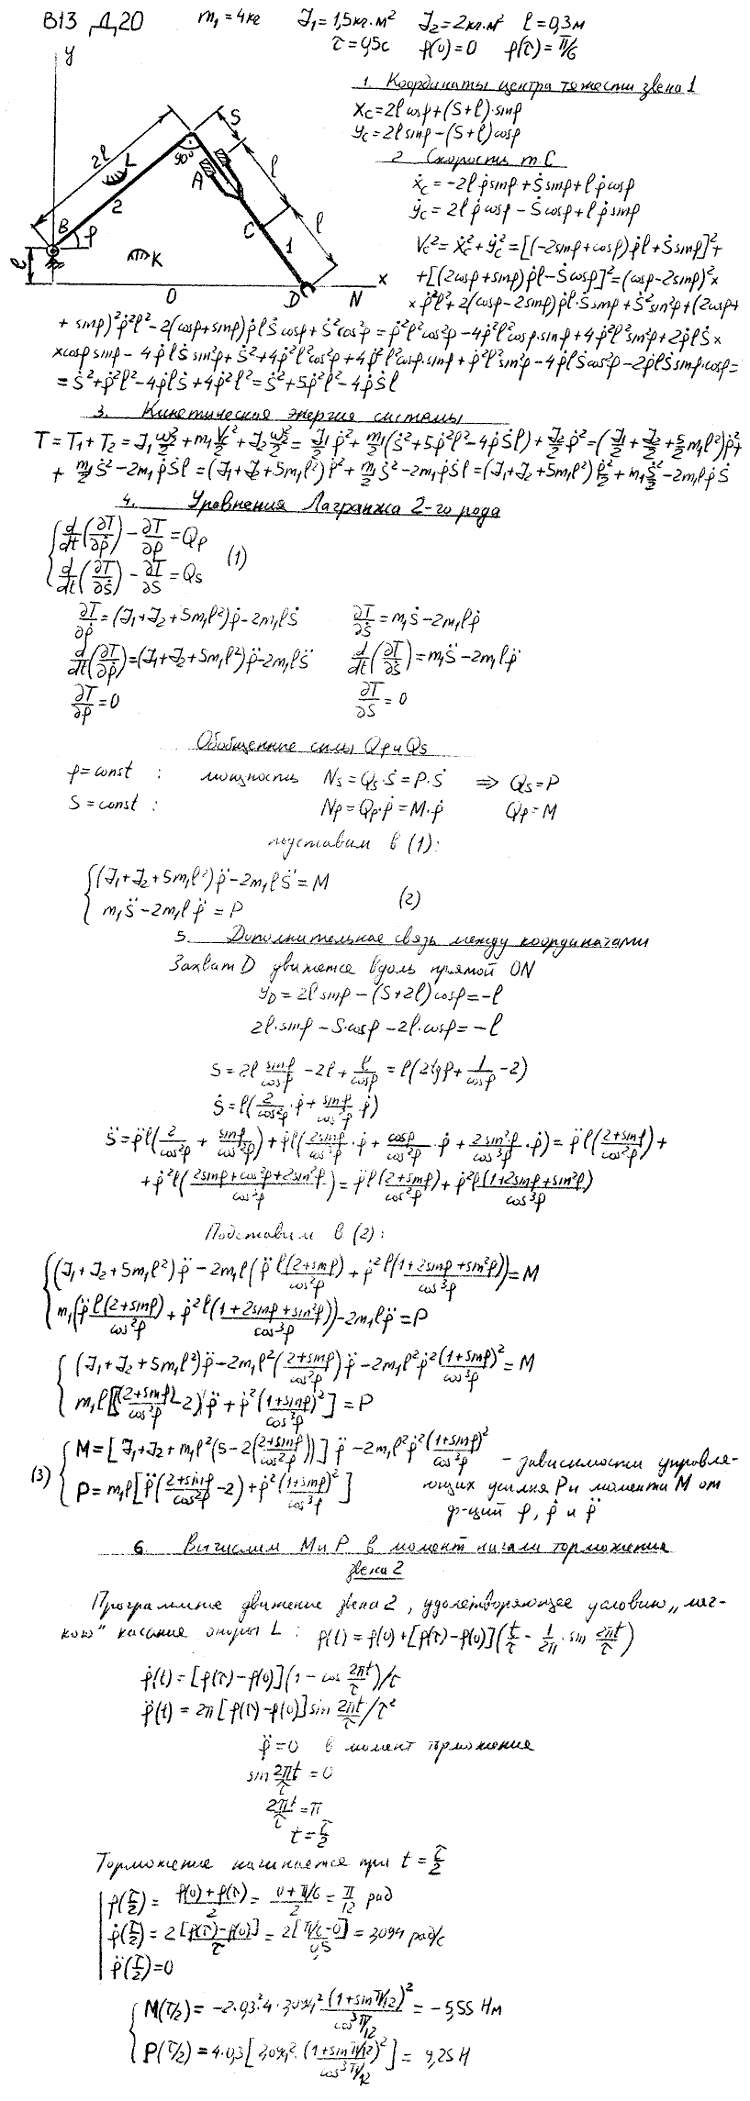 В13 Д.20 m₁=4кг J₁=1,5кг.м² J₂=2кг.м² l=0,3м
τ=0,5с φ(0)=0 φ(τ)=π/6
y
1. Координаты центра тяжести звена 1
x_C=2l cosφ+(S+l)·sinφ
y_C=2l sinφ-(S+l)cosφ
2 Скорость т.С
ẋ_C=-2lφ̇sinφ+Ṡsinφ+lφ̇cosφ
ẏ_C=2lφ̇cosφ-Ṡcosφ+lφ̇sinφ
V_C²=ẋ_C²+ẏ_C²=[(-2sinφ+cosφ)φ̇l+Ṡsinφ]²+
+[(2cosφ+sinφ)φ̇l-Ṡcosφ]²=(cosφ-2sinφ)²×
×φ̇²l²+2(cosφ-2sinφ)φ̇l·Ṡsinφ+Ṡ²sin²φ+(2cosφ+
2l L 90° S A l l 2 B φ C 1 К l O D N x
+sinφ)²φ̇²l²-2(cosφ+sinφ)φ̇lṠcosφ+Ṡ²cos²φ=φ̇²l²cos²φ-4φ̇²l²cosφ·sinφ+4φ̇²l²sin²φ+2φ̇lṠ×
×cosφsinφ-4φ̇lṠsin²φ+Ṡ²+4φ̇²l²cos²φ+4φ̇²l²cosφ·sinφ+φ̇²l²sin²φ-4φ̇lṠcos²φ-2φ̇lṠsinφ·cosφ=
=Ṡ²+φ̇²l²-4φ̇lṠ+4φ̇²l²=Ṡ²+5φ̇²l²-4φ̇Ṡl
3. Кинетическая энергия системы
T=T₁+T₂=J₁ω₂²/2+m₁V_C²/2+J₂ω₂²/2=J₁/2φ̇²+m₁/2(Ṡ²+5φ̇²l²-4φ̇Ṡl)+J₂/2φ̇²=(J₁/2+J₂/2+5/2m₁l²)φ̇²+
+m₁/2Ṡ²-2m₁φ̇Ṡl=(J₁+J₂+5m₁l²)φ̇²+m₁/2Ṡ²-2m₁φ̇Ṡl=(J₁+J₂+5m₁l²)φ̇²/2+m₁Ṡ²/2-2m₁lφ̇Ṡ
4. Уравнения Лагранжа 2-го рода
d/dt(∂T/∂φ̇)-∂T/∂φ=Qφ
(1)
d/dt(∂T/∂Ṡ)-∂T/∂S=Qs
∂T/∂φ̇=(J₁+J₂+5m₁l²)φ̇-2m₁lṠ ∂T/∂Ṡ=m₁Ṡ-2m₁lφ̇
d/dt(∂T/∂φ̇)=(J₁+J₂+5m₁l²)φ̈-2m₁lS̈ d/dt(∂T/∂Ṡ)=m₁S̈-2m₁lφ̈
∂T/∂φ=0 ∂T/∂S=0
Обобщенные силы Qφ и Qs
φ=const : мощность Ns=Qs·Ṡ=P·Ṡ ⇒ Qs=P
S=const : Nφ=Qφ·φ̇=M·φ̇ Qφ=M
подставим в (1):
(J₁+J₂+5m₁l²)φ̈-2m₁lS̈=M
(2)
m₁S̈-2m₁lφ̈=P
5. Дополнительная связь между координатами
Захват D движется вдоль прямой ON
y_D=2l sinφ-(S+2l)cosφ=-l
2l·sinφ-S·cosφ-2l·cosφ=-l
S=2l sinφ/cosφ-2l+l/cosφ=l(2tgφ+1/cosφ-2)
Ṡ=l(2/cos²φ·φ̇+sinφ/cos²φ·φ̇)
S̈=φ̈l(2/cos²φ+sinφ/cos²φ)+φ̇l(2sinφ/cos³φ·φ̇+cosφ/cos²φ·φ̇+2sin²φ/cos³φ·φ̇)=φ̈l(2+sinφ/cos²φ)+
+φ̇²l(2sinφ+cos²φ+2sin²φ/cos³φ)=φ̈l(2+sinφ)/cos²φ+φ̇²l(1+2sinφ+sin²φ)/cos³φ
Подставим в (2):
(J₁+J₂+5m₁l²)φ̈-2m₁l(φ̈l(2+sinφ)/cos²φ+φ̇²l(1+2sinφ+sin²φ)/cos³φ)=M
m₁(φ̈l(2+sinφ)/cos²φ+φ̇²l(1+2sinφ+sin²φ)/cos³φ)-2m₁lφ̈=P
(J₁+J₂+5m₁l²)φ̈-2m₁l²(2+sinφ/cos²φ)φ̈-2m₁l²φ̇²(1+sinφ)²/cos³φ=M
m₁l[((2+sinφ)/cos²φ-2)φ̈+φ̇²(1+sinφ)²/cos³φ]=P
(3) M=[J₁+J₂+m₁l²(5-2(2+sinφ/cos²φ))]φ̈-2m₁l²φ̇²(1+sinφ)²/cos³φ - зависимости управля-
P=m₁l[φ̈(2+sinφ/cos²φ-2)+φ̇²(1+sinφ)²/cos³φ] ющих усилия P и момента M от
ф-ций φ, φ̇ и φ̈
6. Вычислим M и P в момент начала торможения
звена 2
Программное движение звена 2, удовлетворяющее условию „мяг-
кого" касания опоры L: φ(t)=φ(0)+[φ(τ)-φ(0)](t/τ-1/2π·sin 2πt/τ)
φ̇(t)=[φ(τ)-φ(0)](1-cos 2πt/τ)/τ
φ̈(t)=2π[φ(τ)-φ(0)]sin 2πt/τ/τ²
φ̈=0 в момент торможения
sin 2πt/τ=0
2πt/τ=π
t=τ/2
Торможение начинается при t=τ/2
φ(τ/2)=φ(0)+φ(τ)/2=0+π/6/2=π/12 рад
φ̇(τ/2)=2[φ(τ)-φ(0)]/τ=2[π/6-0]/0,5=2,094 рад/с
φ̈(τ/2)=0
M(τ/2)=-2·0,3²·4·2,094²(1+sinπ/12)²/cos³π/12=-5,55 Нм
P(τ/2)=4·0,3[2,094²·(1+sinπ/12)²/cos³π/12]=9,25Н